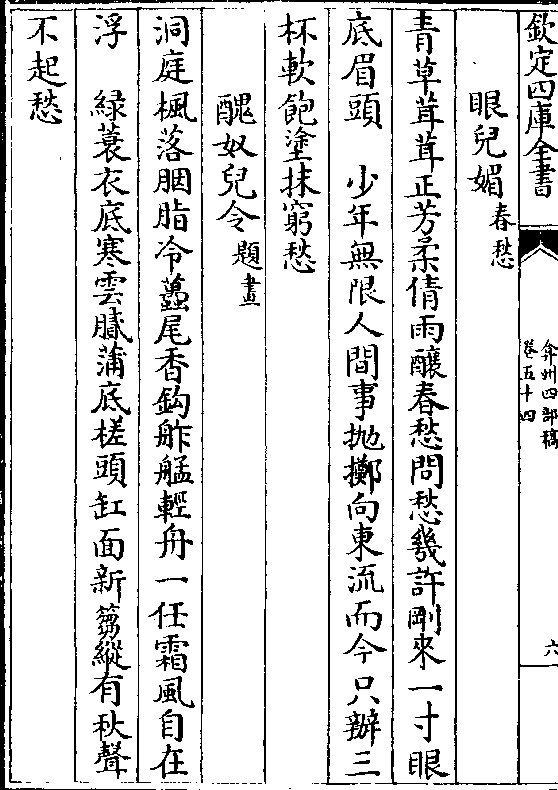 欽定四庫全書
弇州四部稿
卷五十四
六
眼兒媚春愁
青草茸茸正芳柔倩雨釀春愁問愁幾許剛來一寸眼
底眉頭 少年無限人間事抛擲向東流而今只辦三
杯軟飽塗抹窮愁
醜奴兒令題畫
洞庭楓落胭脂冷蠆尾香鈎舴艋輕舟一任霜風自在
浮 緑蓑衣底寒雲膩蒲底槎頭缸面新篘縱有秋聲
不起愁